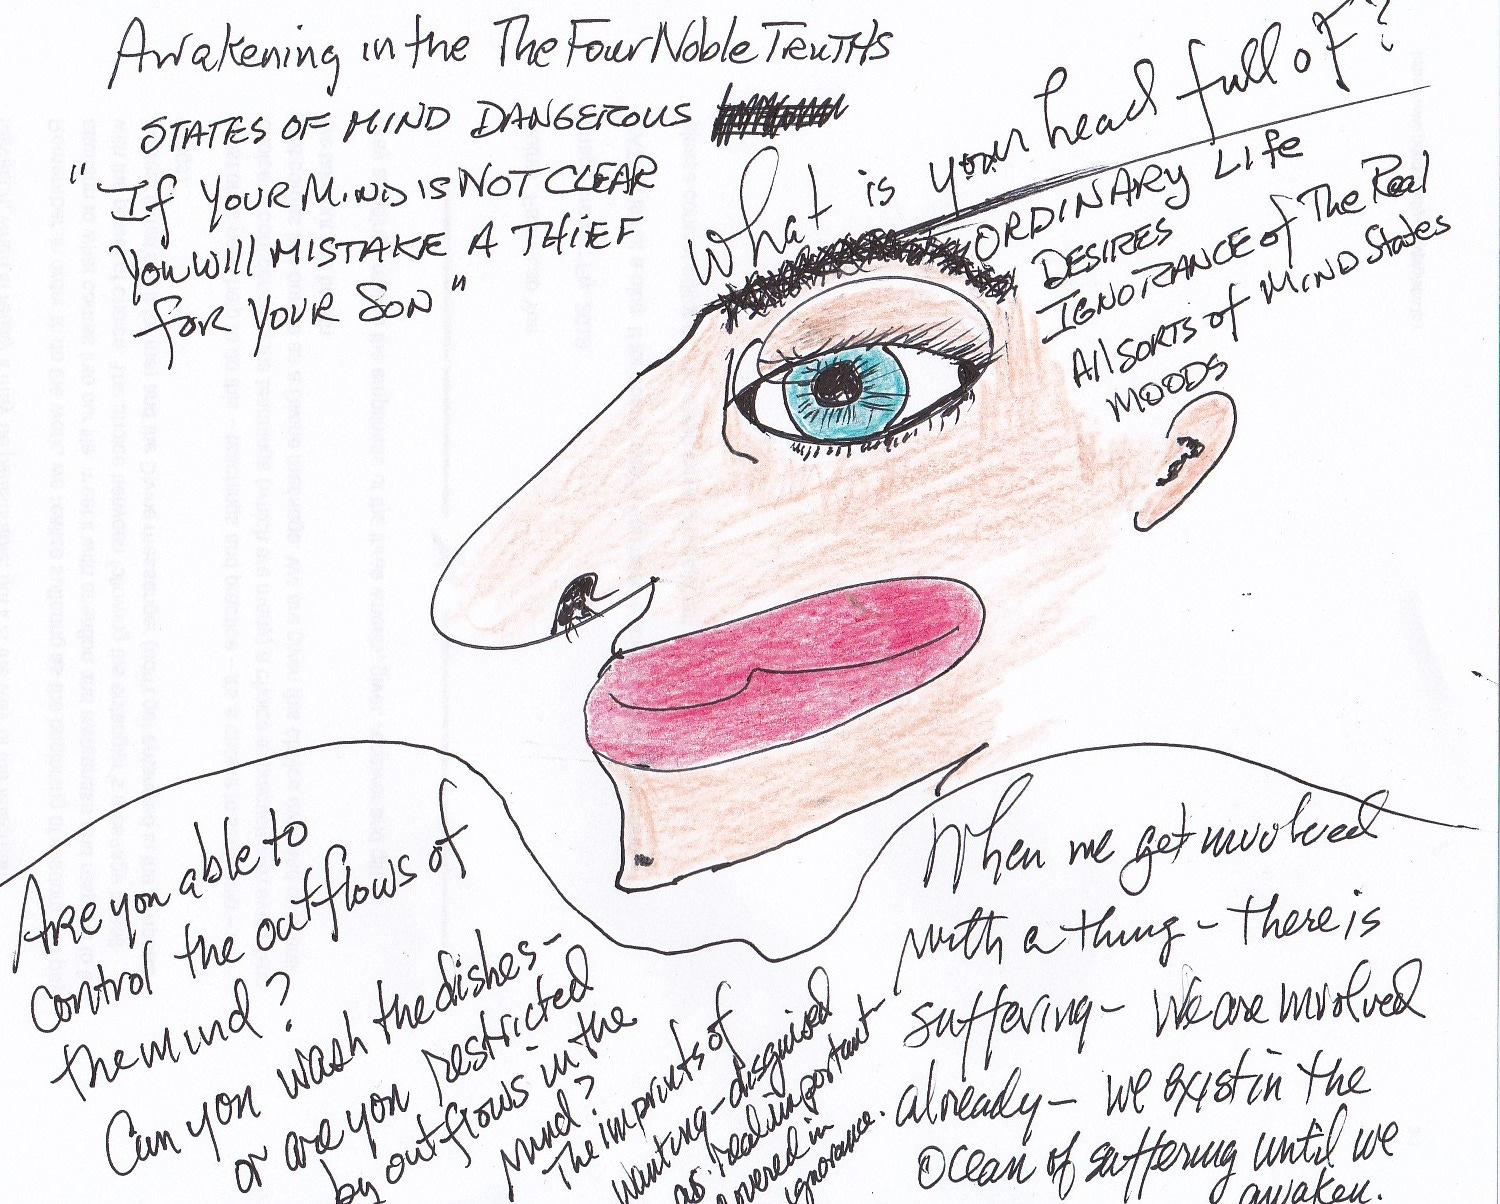 Awakening in the The Four Noble Truths
STATES OF MIND DANGEROUS
"If YOUR MIND IS NOT CLEAR
YOU WILL MISTAKE A THIEF
for YOUR SON"
What is your head full of?
ORDINARY Life
DESIRES
IGNORANCE of The Real
All SORTS of MIND States
MOODS
Are you able to
control the outflows of
the mind?
Can you wash the dishes-
or are you restricted
by outflows in the
mind?
The imprints of
wanting-disguised
as real important-
covered in
ignorance.
When we get involved
with a thing - there is
suffering - We are involved
already - we exist in the
ocean of suffering until we
awaken.